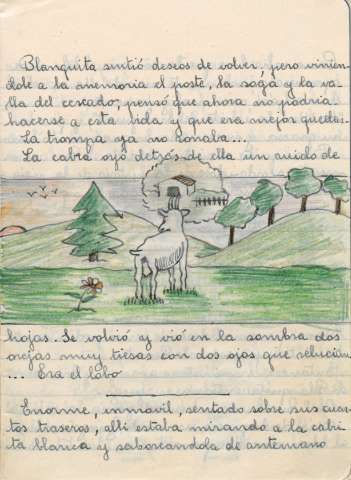 Blanquita sintió deseos de volver, pero vinién-
dole a la memoria el poste, la soga y la va-
lla del cercado, pensó que ahora no podría
hacerse a esta vida y que era mejor quedar-
La trompa ya no sonaba...
La cabra oyó detrás de ella un ruido de
hojas. Se volvió y vió en la sombra dos
orejas muy tiesas con dos ojos que relucían
... Era el lobo
Enorme, inmovil, sentado sobre sus cuar-
tos traseros, allí estaba mirando a la cabri
ta blanca y saboreándola de antemano